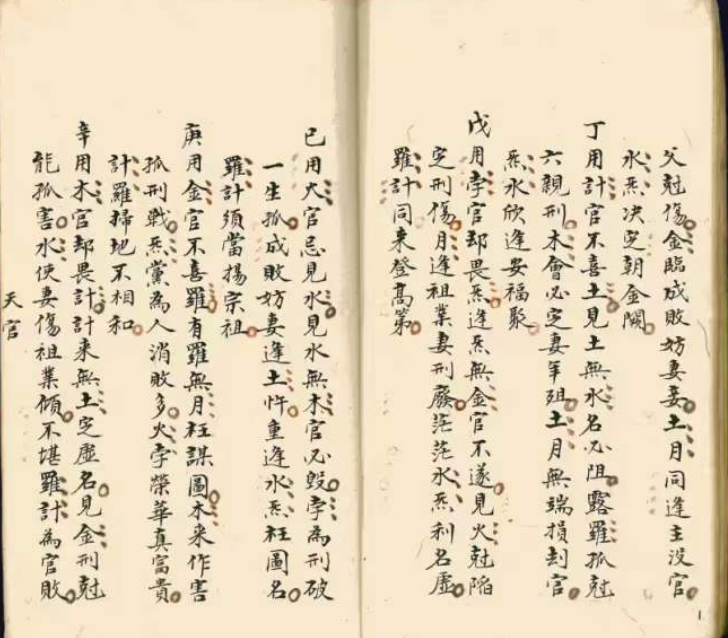 父尅傷金臨成敗妨妻妾土月同逢主没官
水炁决定朝金闕
丁用計官不喜土見土無水名必阻露羅孤尅
六親刑木會必定妻年殂土月無端損刦官
炁水欣逢安福聚
戊用孛官却畏炁逢炁無金官不遂見火尅陷
定刑傷月逢祖業妻刑廢茫茫水炁利名虛
羅計同来登髙第
己用火官忌見水見水無木官必毀孛為刑破
一生孤成敗妨妻逢土忤重逢水炁枉圖名
羅計須當揚宗祖
庚用金官不喜羅有羅無月枉謀圖木来作害
孤刑戰炁黨為人消敗多火孛榮華真富貴
計羅掃地不相和
辛用木官却畏計計来無土定虛名見金刑尅
能孤害水使妻傷祖業傾不堪羅計為官敗
天官